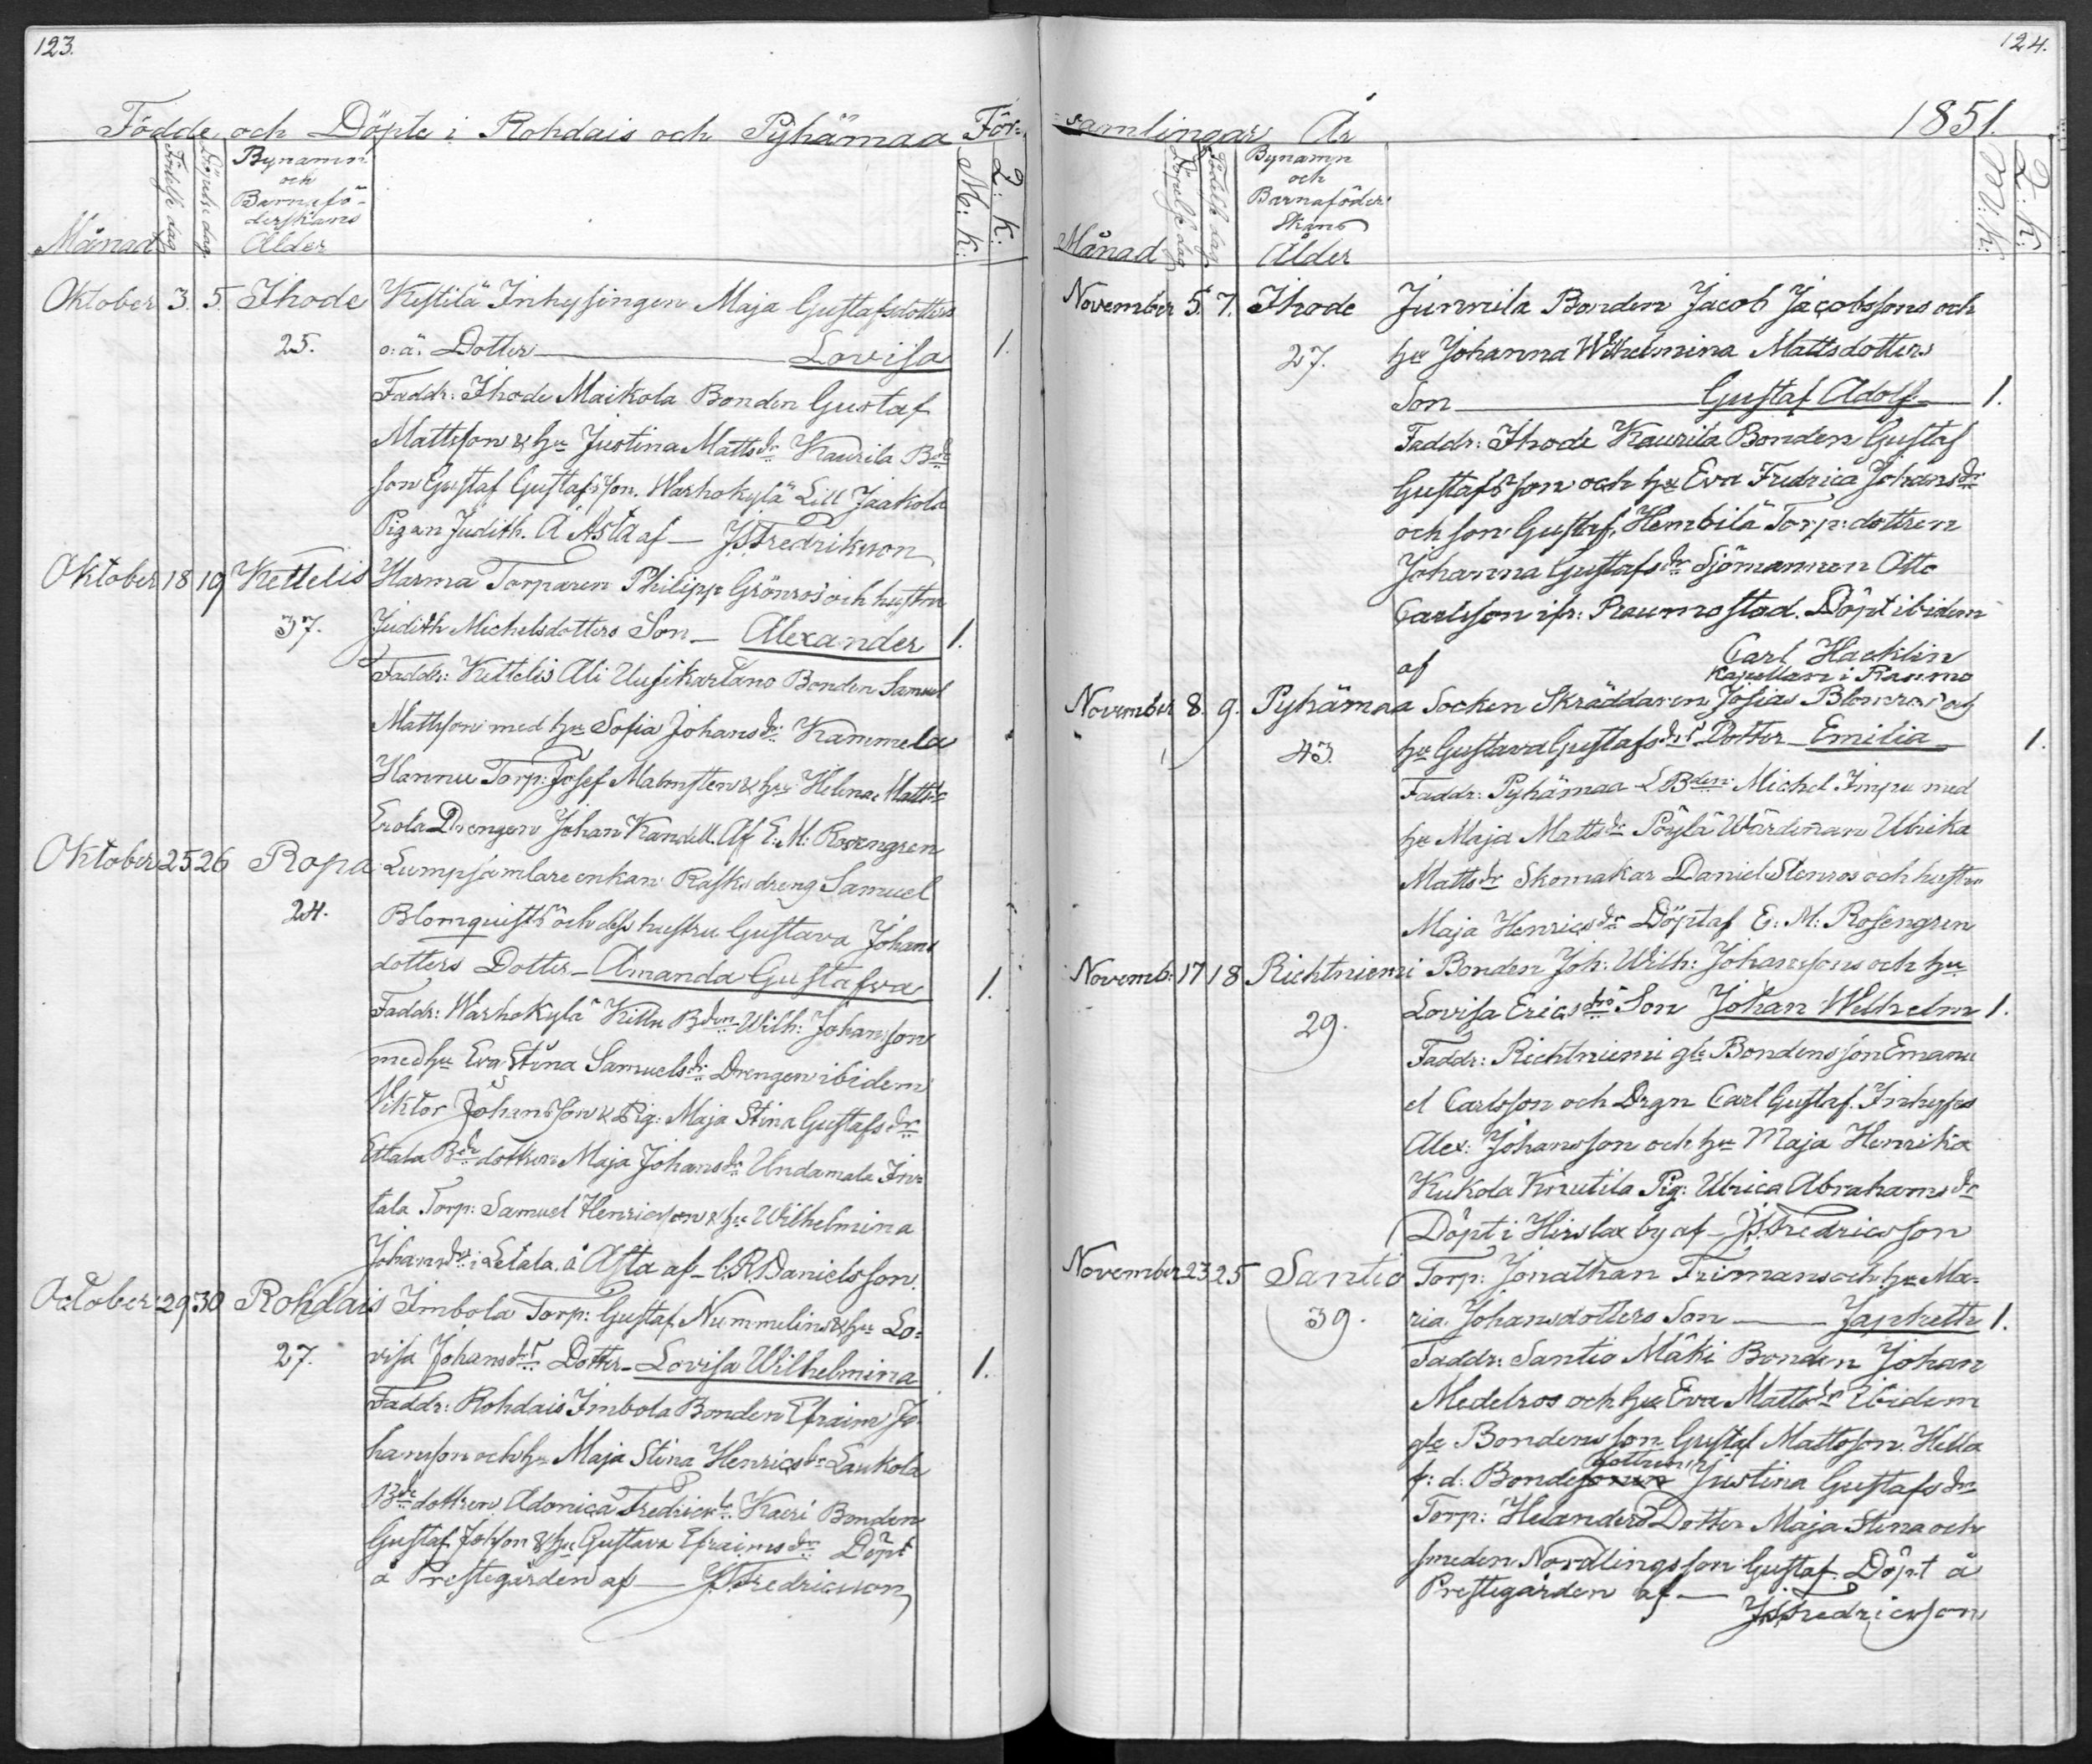 123.
Födde och Döpte i Rohdais och Pyhämaa För-
Månad
Födelse dag
Döpelse dag
Bynamn
och
Barnafö-
derskans
Ålder
M: K:
Q: K:
Oktober 3. 5. Ihode Kestilä Inhysingen Maja Gustafsdotters
25. o: ä: Dotter — Lovisa 1.
Faddr: Ihode Maikola Bonden Gustaf
Mattsson & hu Justina Matts dr Kaurila Bde
son Gustaf Gustafsson. Warhokylä Lill Jaakola
Pigan Judith. Å Asta af — JFredriksson
Oktober 18 19 Kettelis Harma Torparen Philipp Grönros och hustru
37. Judith Michelsdotters Son — Alexander 1.
Faddr: Kettelis Ali Uusikartano Bonden Samuel
Mattsson med hu Sofia Johans dr Kammela
Hannu Torp: Josef Malmsten & hu Helena Matts dr
Erola Drengen Johan Kandell. Af E: M: Rosengren
Oktober 25 26 Ropa Lumpsamlare enkan Rasks dreng Samuel
24. Blomquists och dess hustru Gustava Johans
dotters Dotter — Amanda Gustafva 1.
Faddr: Warhokylä Killu Bden Wilh: Johansson
med hu Eva Stina Samuels dr Drengen ibidem
Viktor Johansson & Pig: Maja Stina Gustafs dr
Ettala Bde dottren Maja Johans dr Undamala In-
tala Torp: Samuel Henricsson & hu Wilhelmina
Johans dr i Letala. å Asta af — C. R. Danielsson.
October 29 30 Rohdais Imbola Torp: Gustaf Nummelins & hu Lo-
27. visa Johans drs Dotter — Lovisa Wilhelmina 1.
Faddr: Rohdais Imbola Bonden Efraim Jo-
hansson och hu Maja Stina Henrics dr Laukola
Bde dottren Adonica Fredrics dr Kaeri Bonden
Gustaf Johsson & hu Gustava Efraims dr Döpt
å Prestegården af — JFredricsson
124.
samlingar År 1851.
Månad
Döpelse dag
Födelse dag
Bynamn
och
Barnaföder-
skans
Ålder
M: K:
Q: K:
November 5. 7. Ihode Junnila Bonden Jacob Jacobssons och
27. hu Johanna Wilhelmina Mattsdotters
Son — Gustaf Adolf — 1.
Faddr: Ihode Kaurila Bonden Gustaf
Gustafsson och hu Eva Fredrica Johans dr
och son Gustaf, Hembilä Torp: dottren
Johanna Gustafs dr Sjömannen Otto
Carlsson ifr: Raumo stad. Döpt ibidem
af Carl Hacklin
Kapellan i Raumo
November 8. 9. Pyhämaa Socken Skräddaren Josias Blomros och
43. hu Gustava Gustafs drs Dotter — Emilia 1.
Faddr: Pyhämaa L Bden: Michel Impu med
hu Maja Matts dr Pöylä Wärdinnan Ulrika
Matts dr Skomakar Daniel Stenros och hustru
Maja Henrics dr Döpt af E: M: Rosengren
Novemb: 17 18 Richtniemi Bonden Joh: Wilh: Johanssons och hu
29. Lovisa Erics drs Son Johan Wilhelm 1.
Faddr: Richtniemi gle Bondens son Emanu
el Carlsson och Drgn Carl Gustaf. Inhyses
Alex: Johansson och hu Maja Henrika
Kukola Knutila Pig: Ulrica Abrahams dr
Döpt i Hirslax by af — JFredricsson
November 23 25 Santio Torp: Jonathan Frimans och hu Ma-
39. ria Johansdotters Son — Japheth 1.
Faddr: Santio Mäki Bonden Johan
Medelros och hu Eva Matts dr Ibidem
gle Bondens son Gustaf Mattsson. Hella
dottren
f: d: Bondesonen Justina Gustafs dr
Torp: Helanders Dotter Maja Stina och
smeden Nordlings son Gustaf. Döpt å
Prestegården af —
JFredricsson